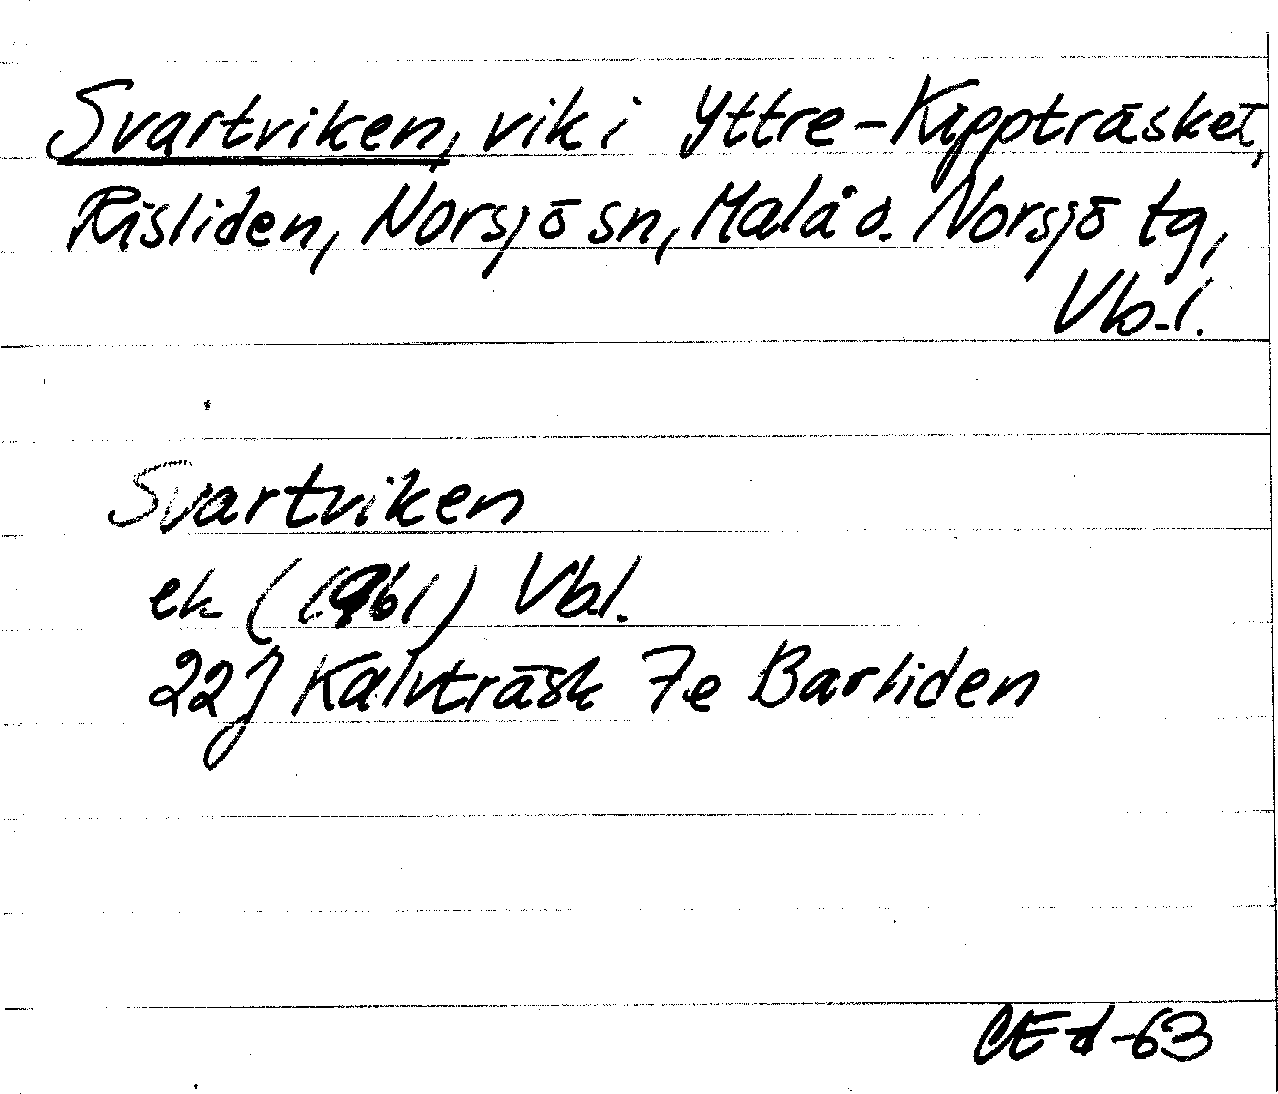 Svartviken, vik i Yttre-Kippträsket,
Risliden, Norsjö sn, Malå o. Norsjö tg,
Vb.l.
Svartviken
ek (1961) Vbl.
22J Kalvträsk 7e Barliden
CEd-63